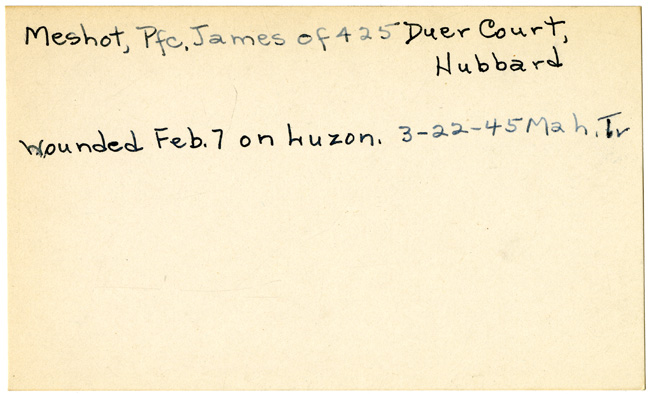 Meshot, Pfc. James of 425 Duer Court,
Hubbard
Wounded Feb. 7 on Luzon. 3-22-45 Mah. Tr